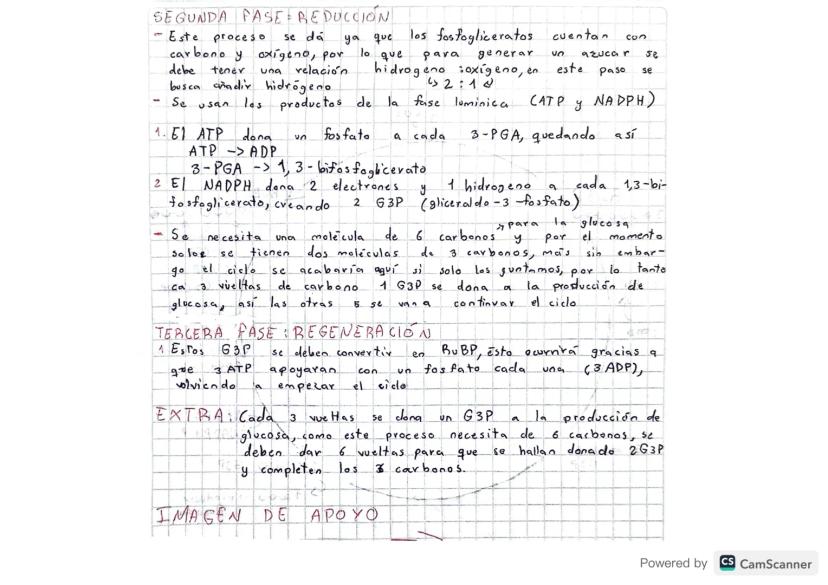 SEGUNDA FASE: REDUCCIÓN
- Este proceso se dá ya que los fosfogliceratos cuentan con
carbono y oxígeno, por lo que para generar un azucar se
debe tener una relación hidrogeno:oxígeno, en este paso se
↳ 2:1
busca añadir hidrógeno
- Se usan los productos de la fase luminica (ATP y NADPH)
1. El ATP dona un fosfato a cada 3-PGA, quedando así
ATP -> ADP
3-PGA -> 1,3-bifosfoglicerato
2 El NADPH dona 2 electrones y 1 hidrogeno a cada 1,3-bi-
fosfoglicerato, creando 2 G3P (gliceraldo-3-fosfato)
para la glucosa
- Se necesita una molécula de 6 carbonos y por el momento
solos se tienen dos moléculas de 3 carbonos, más sin embar-
go el ciclo se acabaría aquí si solo los juntamos, por lo tanto
ca 3 vueltas de carbono 1 G3P se dona a la producción de
glucosa, así las otras 5 se van a continuar el ciclo
TERCERA FASE: REGENERACIÓN
1 Estos G3P se deben convertir en RuBP, esto ocurrirá gracias a
que 3 ATP apoyaran con un fosfato cada una (3 ADP),
volviendo a empezar el ciclo
EXTRA: Cada 3 vueltas se dona un G3P a la producción de
glucosa, como este proceso necesita de 6 carbonos, se
deben dar 6 vueltas para que se hallan donado 2G3P
y completen los carbonos.
IMAGEN DE APOYO
Powered by CS CamScanner